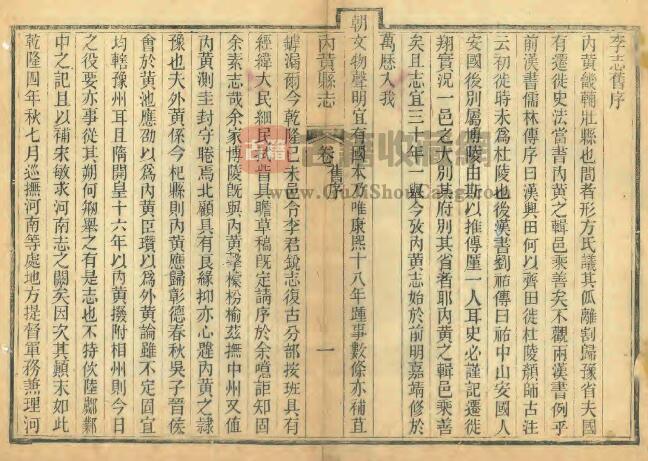 李志舊序
內黃畿輔壯縣也間者形方氏議其瓜離割歸豫省夫國
有遷徙史法當書內黃之輯邑乘善矣不觀兩漢書例乎
前漢書儒林傳序曰漢興田何以齊田徙杜陵顏師古注
云初徙時未為杜陵也後漢書劉祐傳曰祐中山安國人
安國後別屬博陵由斯以推傳厪一人耳史必謹記遷徙
翔實況一邑之大別其府別其省者耶內黃之輯邑乘善
矣且志宜三十年一輯今攷內黃志始於前明嘉靖修於
萬曆入我
朝文物聲明宜有國本乃唯康熙十八年踵事數條亦補苴
罅漏爾今乾隆己未邑令李君銳志復古分部按班具有
經緯大民細民試皆具瞻草稿既定請序於余噫詎知固
余素志哉余家博陵既與內黃擊檬枌榆茲撫中州又值
內黃測圭封守睠焉北顧具有良緣抑亦心韙內黃之隸
豫也夫外黃係今杞縣則內黃應歸彰德春秋吳子晉侯
會於黃池應劭以為內黃臣瓚以為外黃論雖不定固宜
均轄豫州耳且隋開皇十六年以內黃撥附相州則今日
之役要亦事從其朔何煩舉之有是志也不特佽陸鄴
中之記且以補宋敏求河南志之闕矣因次其顛末如此
乾隆四年秋七月巡撫河南等處地方提督軍務兼理河
內黃縣志
卷 舊序
一
古籍收藏網
www.GuJiShouCang.com